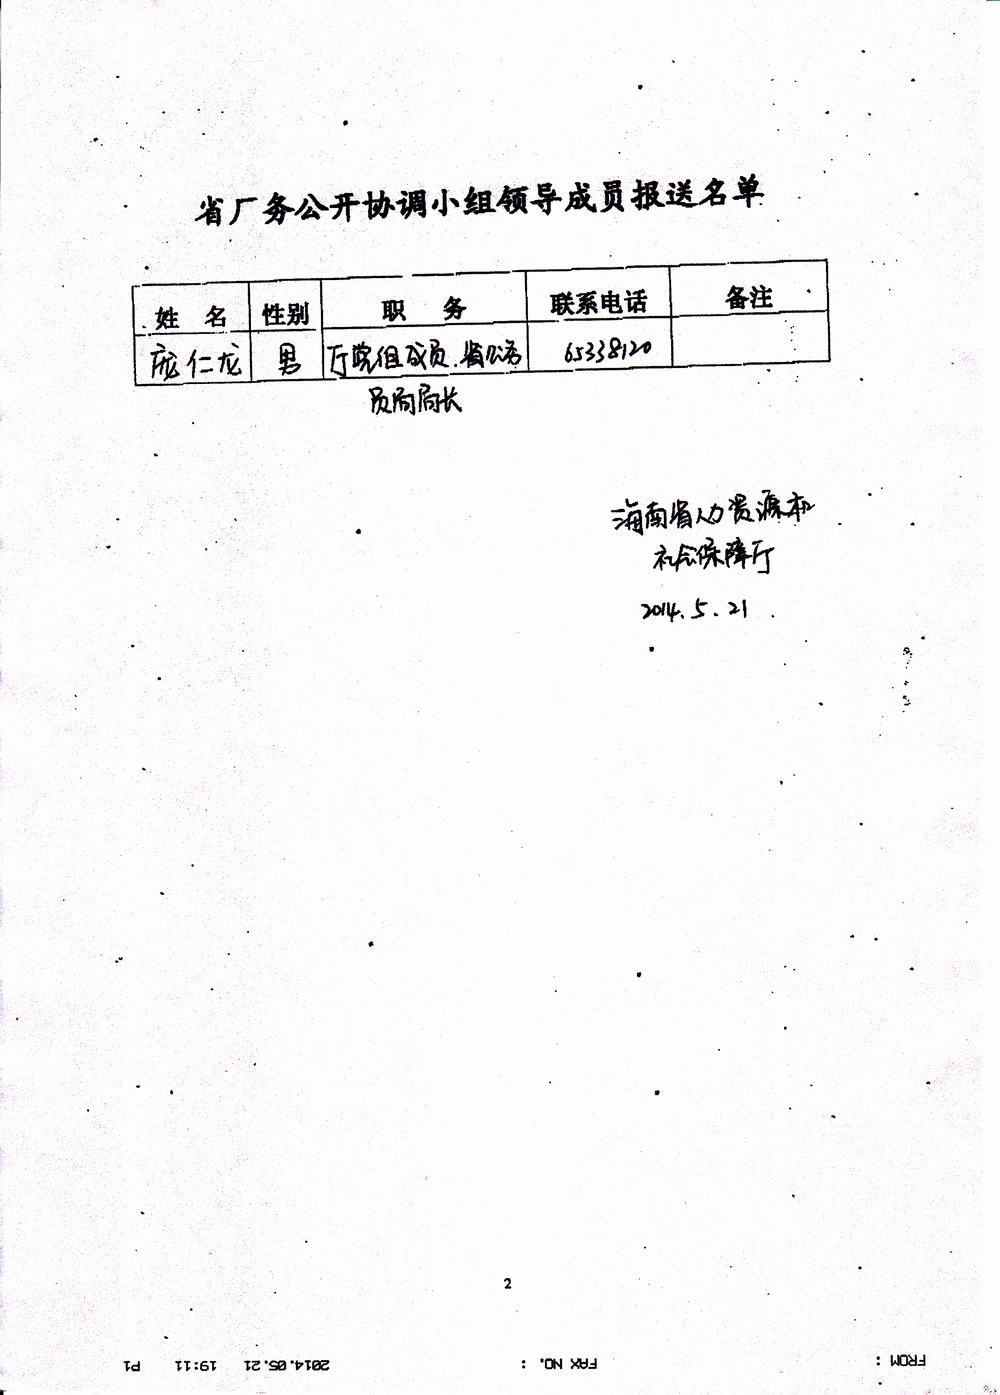 省厂务公开协调小组领导成员报送名单
姓 名 性别 职 务 联系电话 备注
庞仁龙 男 厅党组成员.省公务 65338120
员局局长
海南省人力资源和
社会保障厅
2014.5.21
2
FROM : FAX NO. : 2014.05.21 19:11 P1